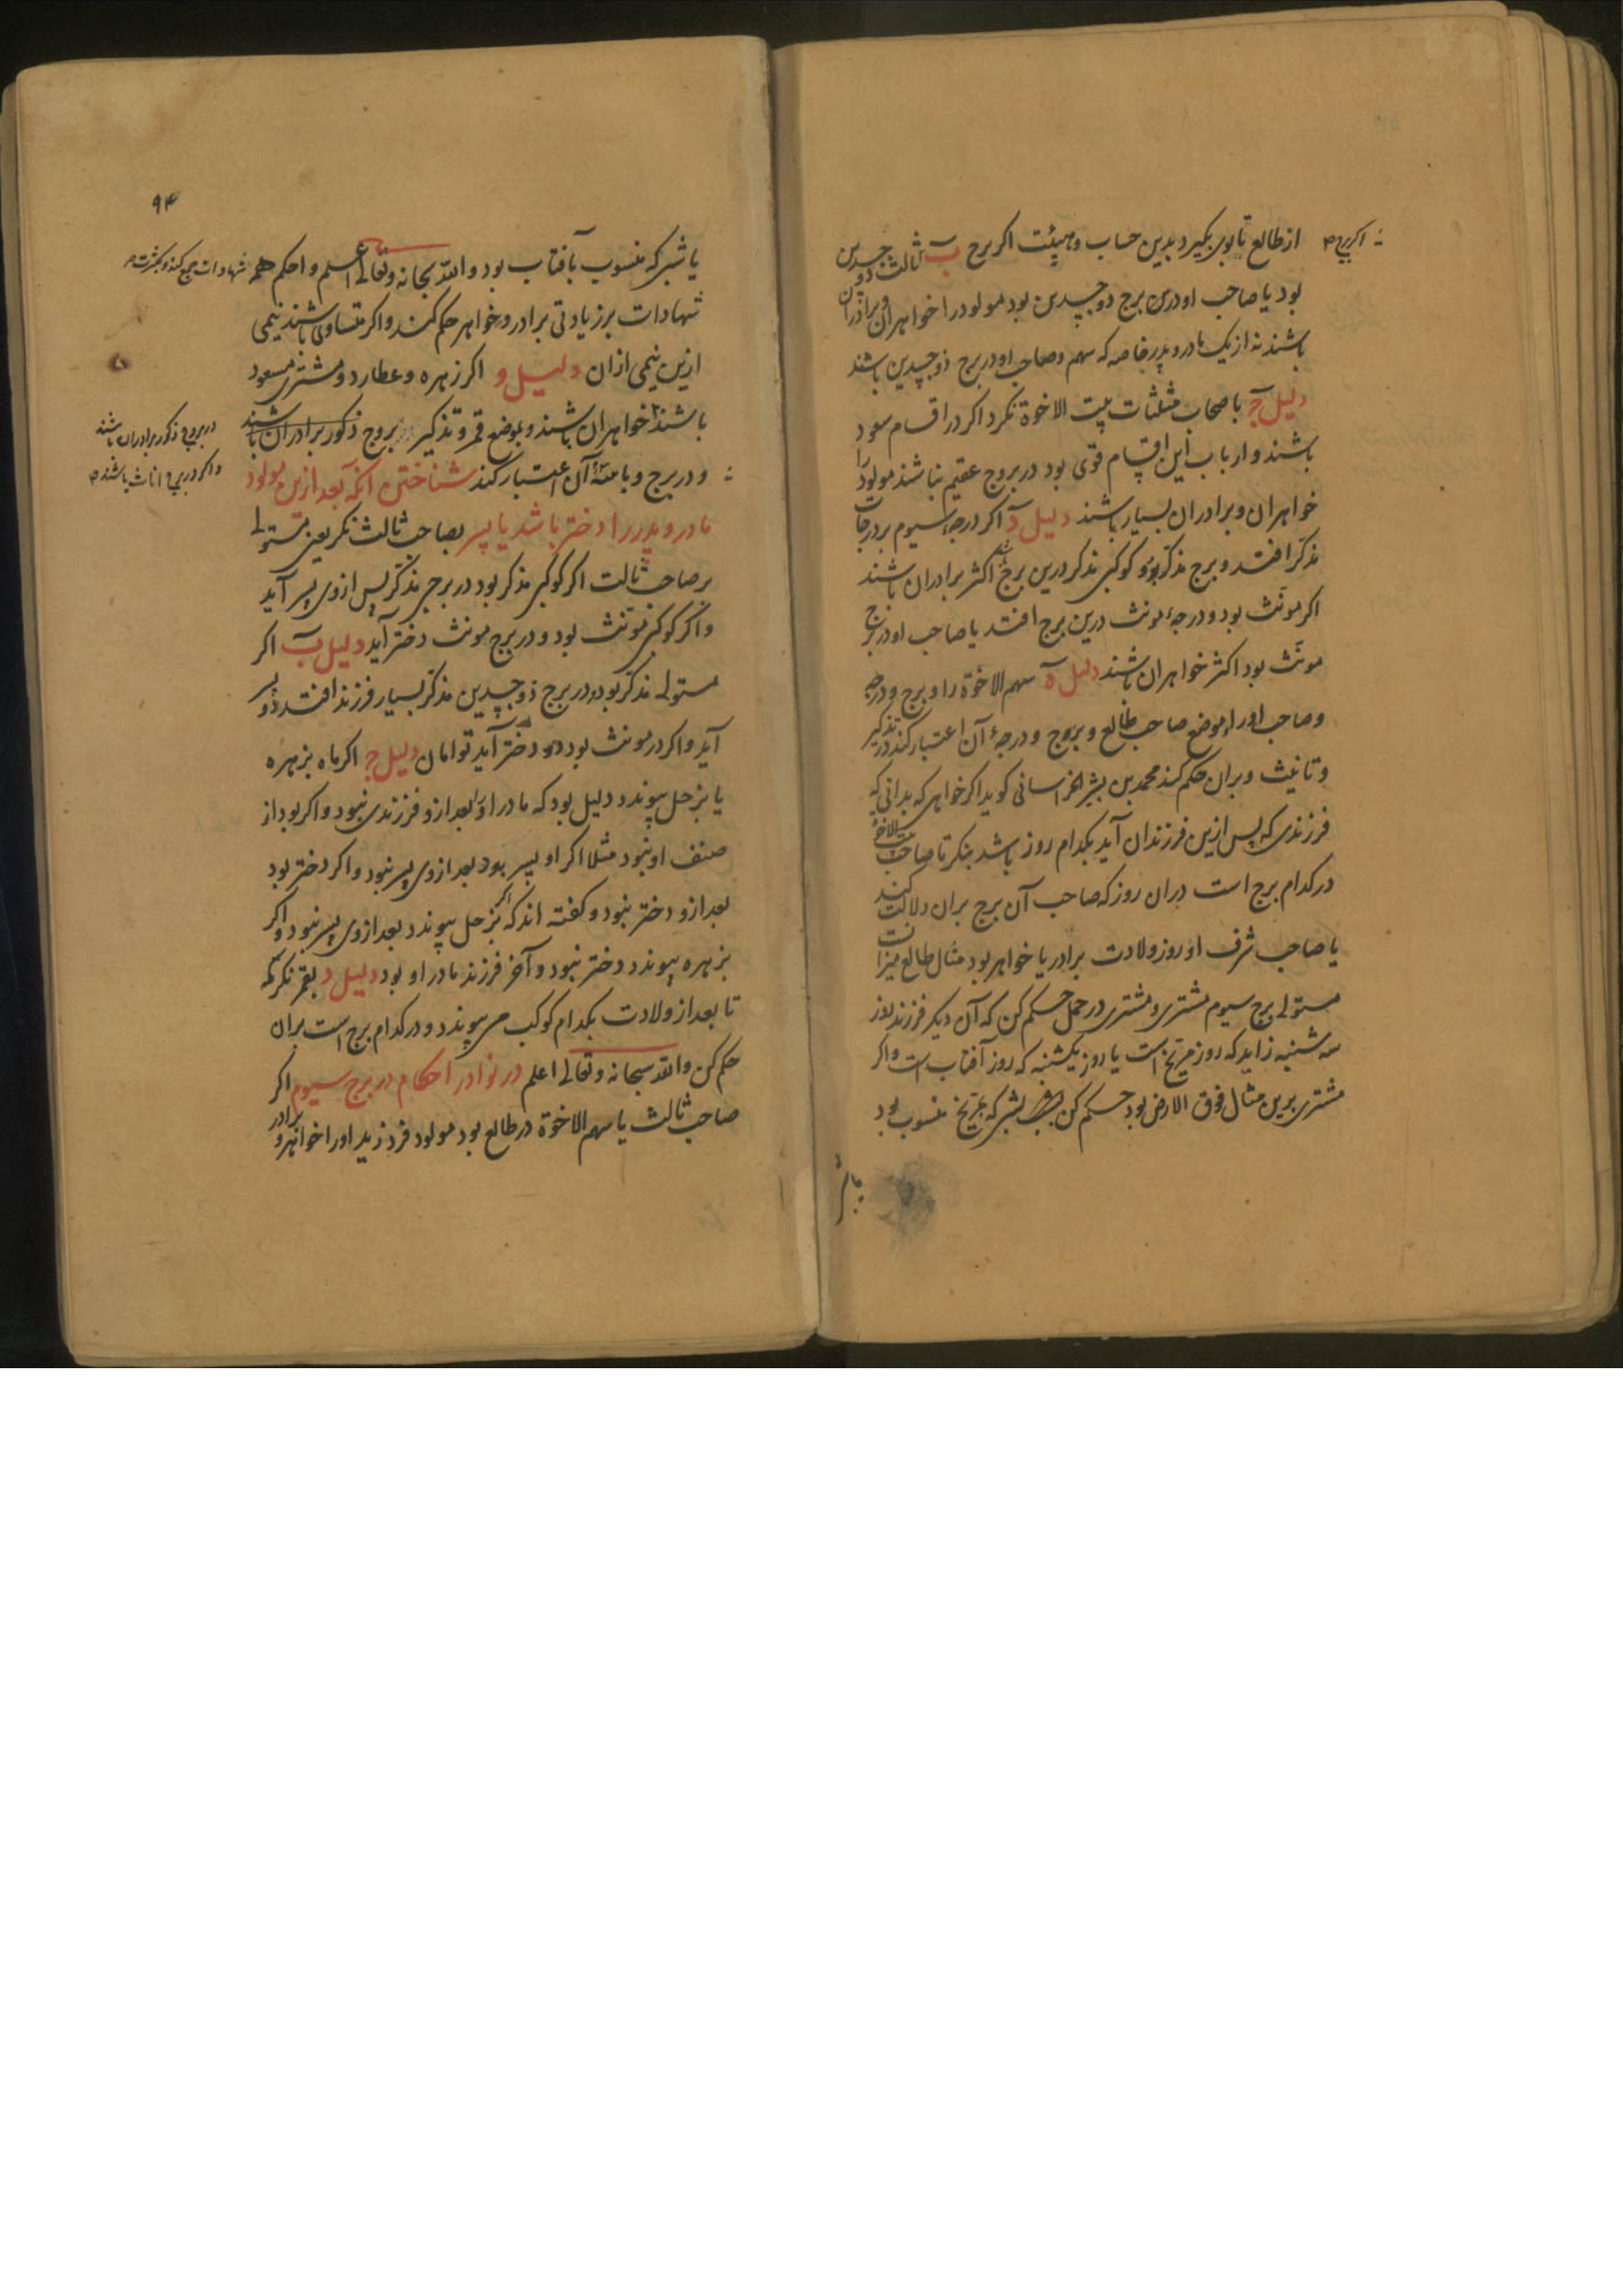 از طالع تا بوی بگیرد بدین حساب و هیئت اگر برج ب ثالث ذو جسدین
بود یا صاحب او درین برج ذو جسدین بود مولود را خواهران و برادران
باشند نه از یک مادر و پدر خاصه که سهم و صاحب او در برج ذو جسدین باشند
دلیل ج با صحاب مثلثات بیت الاخوة نکرد اکر در اقسام سعود
باشند و ارباب این اقسام قوی بود در بروج عقیم نباشند مولود را
خواهران و برادران بسیار باشند دلیل د اکر درجه سیوم بر درجات
مذکر افتد و برج مذکر بود و کوکبی مذکر درین برج اکثر برادران باشند
اکر مونث بود و درجهٔ مونث درین برج افتد یا صاحب او در برج
مونث بود اکثر خواهران باشند دلیل ه سهم الاخوة را و برج و درجه
و صاحب او را و موضع صاحب طالع و بروج و درجهٔ آن اعتبار کند در تذکیر
و تانیث و بران حکم کند محمد بن بشر الخراسانی کوید اکر خواهی که بدانی که
فرزندی که پس ازین فرزندان آید بکدام روز باشد بنکر تا صاحب بیت الاخوة
در کدام برج است دران روز که صاحب آن برج بران دلالت کند
یا صاحب شرف او روز ولادت برادر یا خواهر بود مثال طالع میزانست
مستولی برج سیوم مشتری و مشتری در حمل حکم کن که آن دیکر فرزند روز
سه شنبه زاید که روز مریخ است یا روز یکشنبه که روز آفتاب است و اکر
مشتری برین مثال فوق الارض بود حکم کن بشب بشبی که بمریخ منسوب بود
یا شبی
۹۴
یا شبی که منسوب بآفتاب بود والله سبحانه وتعالی اعلم و احکم همه شهادات جمع کند و بکثرت
شهادات بر زیادتی برادر و خواهر حکم کند و اکر متساوی باشند نیمی
ازین نیمی ازان دلیل و اکر زهره و عطارد و مشتری مسعود
باشند خواهران باشند و بموضع قمر و تذکیر بروج ذکور برادران باشند
در بروج ذکور برادران باشند
و اکر در بروج اناث باشند
و در برج و بامته آن اعتبار کند شناختن آنکه بعد ازین مولود
مادر و پدر را دختر باشد یا پسر بصاحب ثالث نکر یعنی مستولی
بر صاحب ثالث اکر کوکبی مذکر بود در برجی مذکر پس ازوی پسر آید
و اکر کوکبی مونث بود و در برج مونث دختر آید دلیل ب اکر
مستولی مذکر بود و در برج ذو جسدین مذکر بسیار فرزند افتد و دو پسر
آید و اکر در مونث بود دو دختر آید توامان دلیل ج اکر ماه بزهره
یا بزحل پیوندد دلیل بود که مادر او را بعد ازو فرزندی نبود و اکر بود از
صنف او نبود مثلا اکر او پسر بود بعد ازوی پسر نبود و اکر دختر بود
بعد ازو دختر نبود و کفته اند که اکر بزحل پیوندد بعد ازوی پسر نبود و اکر
بزهره پیوندد دختر نبود و آخر فرزند مادر او بود دلیل د بقمر نکر که
تا بعد از ولادت بکدام کوکب می پیوندد و در کدام برج است بران
حکم کن والله سبحانه وتعالی اعلم در نوادر احکام در برج سیوم اکر
صاحب ثالث یا سهم الاخوة در طالع بود مولود فرد زید او را خواهر و برادر